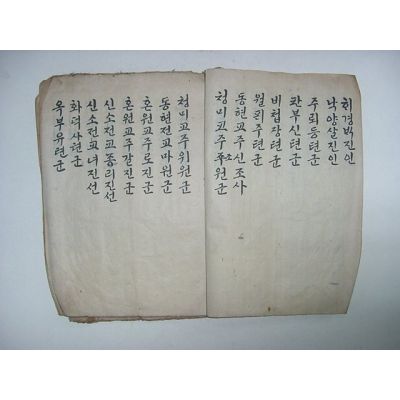 취경박진인
낙양살진인
주뢰등텬군
판부신텬군
비첩장텬군
월퇴주텬군
동현교주신조사
청미교주조원군
청미교주위원군
동현전교마원군
혼원교주로진군
혼원교주갈진군
신소전교종리진선
신소전교녀진선
화덕사텬군
옥부유텬군